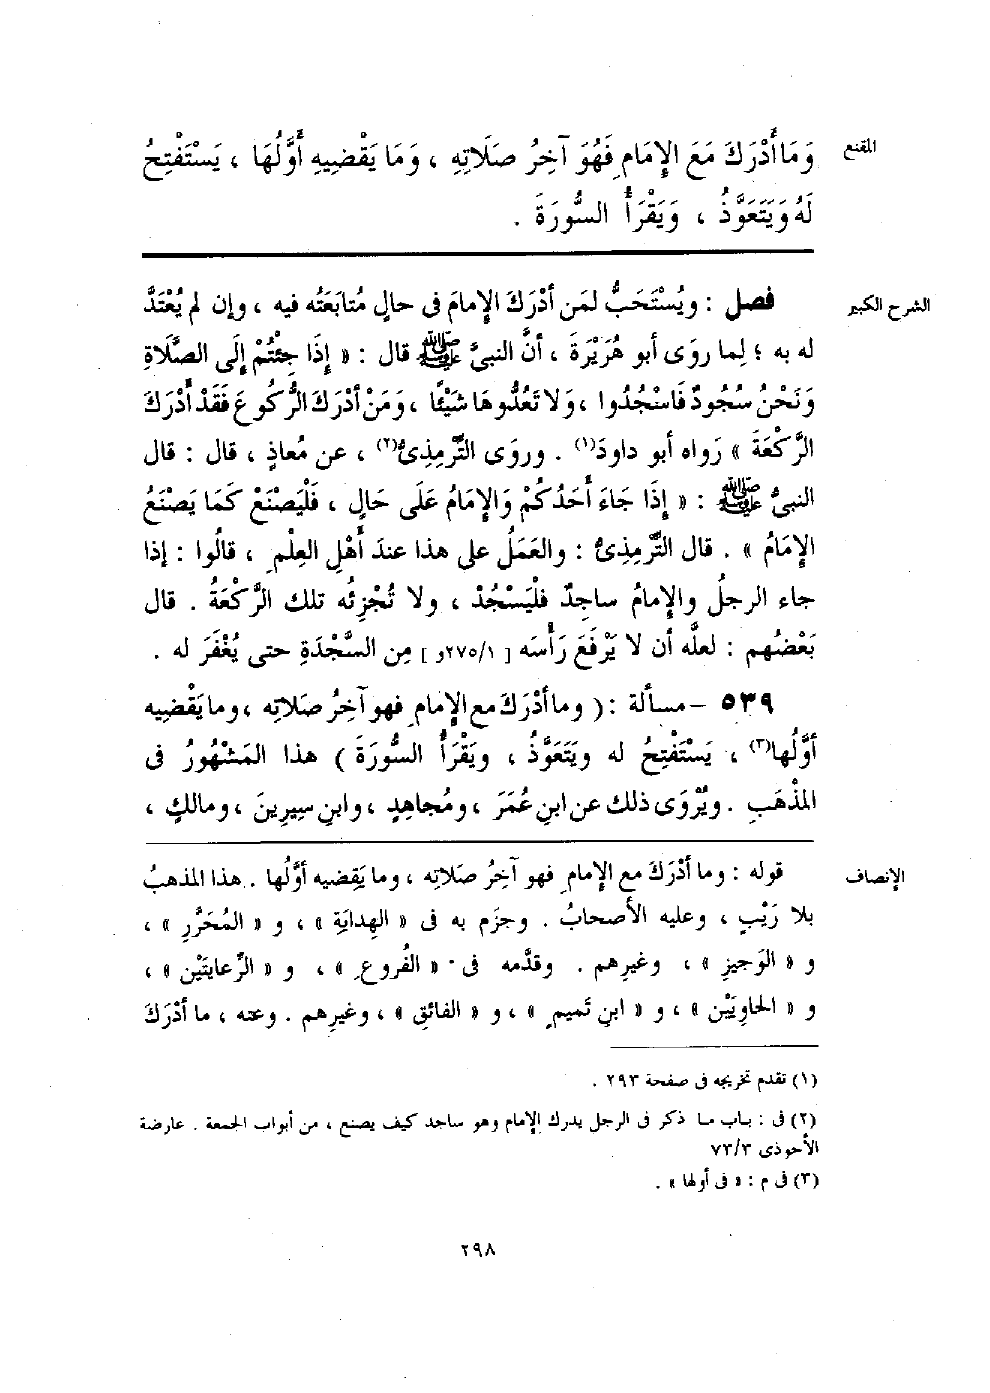 المقنع
وَمَا أَدْرَكَ مَعَ الإِمَامِ فَهُوَ آخِرُ صَلَاتِهِ ، وَمَا يَقْضِيهِ أَوَّلُهَا ، يَسْتَفْتِحُ
لَهُ وَيَتَعَوَّذُ ، وَيَقْرَأُ السُّورَةَ .
الشرح الكبير
فصل : ويُسْتَحَبُّ لمَن أدْرَكَ الإِمامَ فى حالٍ مُتابَعَتُه فيه ، وإن لم يُعْتَدَّ
له به ؛ لِما روَى أبو هُرَيْرَةَ ، أنَّ النبىَّ ﷺ قال : « إِذَا جِئْتُمْ إِلَى الصَّلَاةِ
وَنَحْنُ سُجُودٌ فَاسْجُدُوا ، وَلَا تَعُدُّوهَا شَيْئًا ، وَمَنْ أدْرَكَ الرُّكُوعَ فَقَدْ أَدْرَكَ
الرَّكْعَةَ » رَواه أبو داودَ(١) . وروَى التِّرْمِذِىُّ(٢) ، عن مُعاذٍ ، قال : قال
النبىُّ ﷺ : « إِذَا جَاءَ أَحَدُكُمْ وَالإِمَامُ عَلَى حَالٍ ، فَلْيَصْنَعْ كَمَا يَصْنَعُ
الإِمَامُ » . قال التِّرْمِذِىُّ : والعَمَلُ على هذا عندَ أَهْلِ العِلْمِ ، قالُوا : إذا
جاء الرجلُ والإِمامُ ساجِدٌ فلْيَسْجُدْ ، ولا تُجْزِئُه تلك الرَّكْعَةُ . قال
بَعْضُهم : لعلَّه أن لا يَرْفَعَ رَأْسَه [ ٢٧٥/١و ] مِن السَّجْدَةِ حتى يُغْفَرَ له .
٥٣٩ – مسألة : ( وما أدْرَكَ مع الإِمامِ فهو آخِرُ صَلاتِه ، وما يَقْضِيه
أوَّلُها(٣) ، يَسْتَفْتِحُ له ويَتَعَوَّذُ ، ويَقْرَأُ السُّورَةَ ) هذا المَشْهُورُ فى
المذْهَبِ . ويُرْوَى ذلك عن ابنِ عُمَرَ ، ومُجاهِدٍ ، وابنِ سِيرِينَ ، ومالكٍ ،
الإنصاف
قوله : وما أدْرَكَ مع الإِمامِ فهو آخِرُ صَلاتِه ، وما يَقضِيه أوَّلُها . هذا المذهبُ
بلا رَيْبٍ ، وعليه الأصحابُ . وجزَم به فى « الهِدايَةِ » ، و « المُحَرَّرِ » ،
و « الوَجيزِ » ، وغيرِهم . وقدَّمه فى « الفُروعِ » ، و « الرِّعايتَيْن » ،
و « الحاوِيَيْن » ، و « ابنِ تَميمٍ » ، و « الفائقِ » ، وغيرِهم . وعنه ، ما أدْرَكَ
(١) تقدم تخريجه فى صفحة ٢٩٣ .
(٢) فى : باب ما ذكر فى الرجل يدرك الإمام وهو ساجد كيف يصنع ، من أبواب الجمعة . عارضة
الأحوذى ٧٣/٣
(٣) فى م : « فى أولها » .
٢٩٨